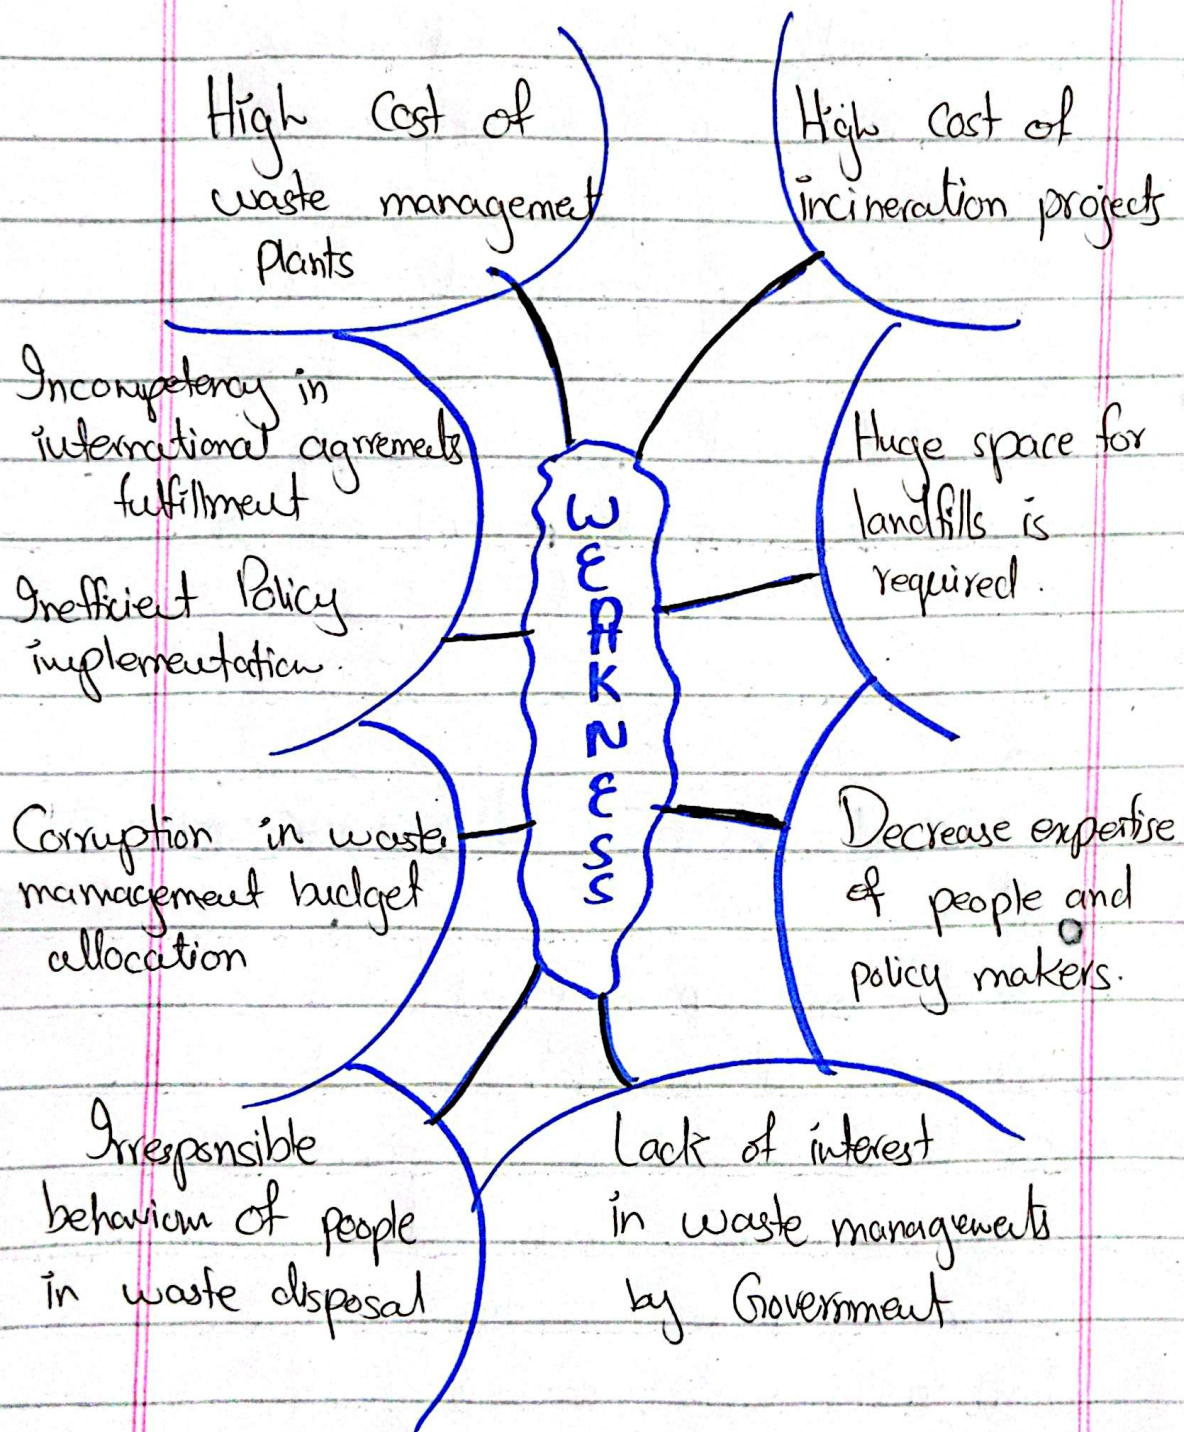 High Cost of
waste management
plants
High Cost of
incineration projects
Incompetency in
international agrrements
fulfillment
Inefficient Policy
implementation.
Huge space for
landfills is
required.
WEAKNESS
Corruption in waste
mamagement budget
allocation
Decrease expertise
of people and
policy makers.
Irresponsible
behaviour of people
in waste disposal
Lack of interest
in waste managements
by Government